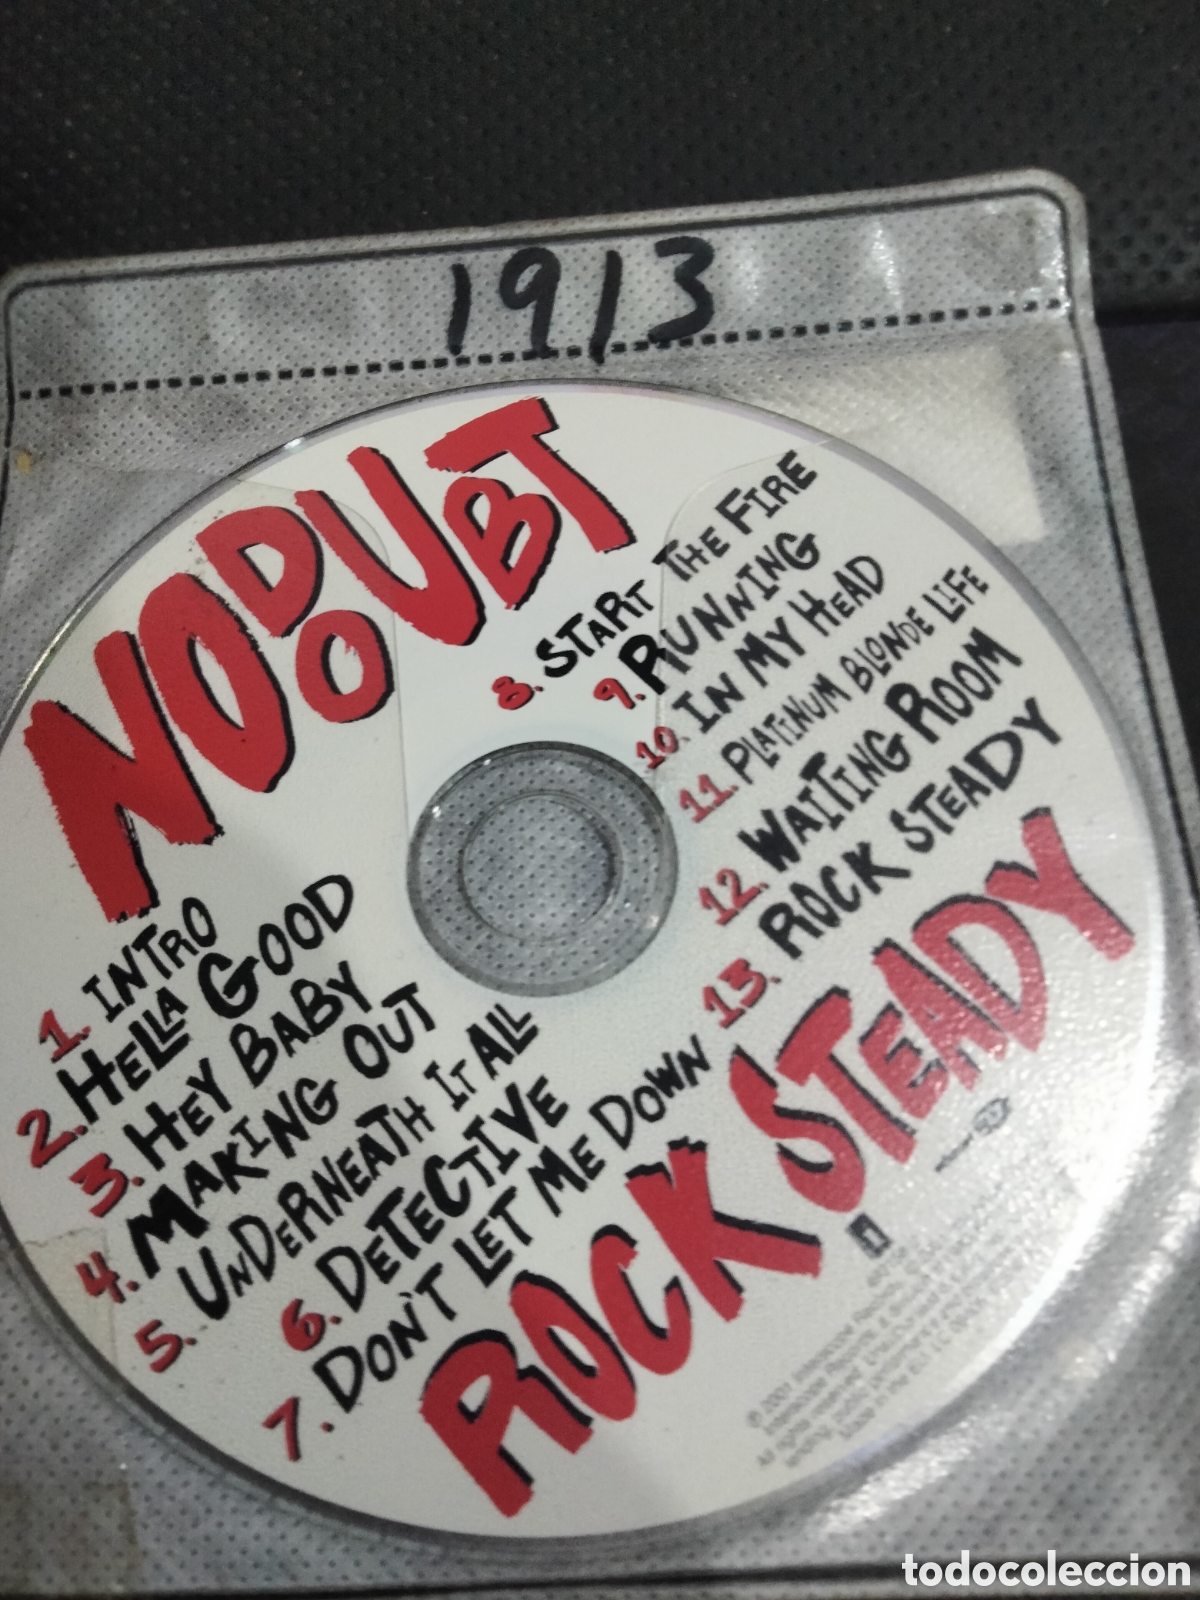 1913
NO DOUBT
1. INTRO
2. HELLA GOOD
3. HEY BABY
4. MAKING OUT
5. UNDERNEATH IT ALL
6. DETECTIVE
7. DON'T LET ME DOWN
8. START THE FIRE
9. RUNNING
10. IN MY HEAD
11. PLATINUM BLONDE LIFE
12. WAITING ROOM
13. ROCK STEADY
ROCK STEADY
℗ 2001 Interscope Records.
Interscope Records
All rights reserved.
Made in the E.U.
todocoleccion